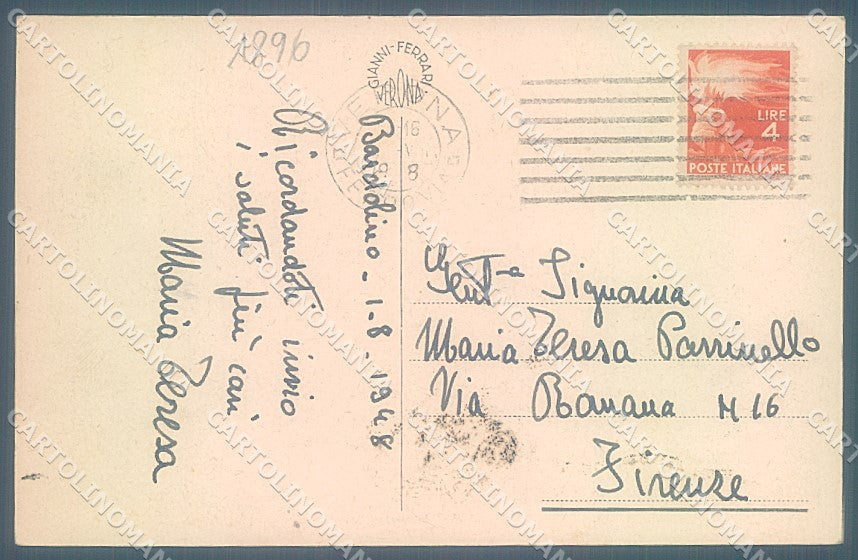 1896
GIANNI-FERRARI
VERONA
Bardolino - 1-8-1948
Ricordandoti invio
i saluti più cari
Maria Teresa
LIRE
4
POSTE ITALIANE
Gent.ma Signorina
Maria Teresa Parrinello
Via Romana N 16
Firenze
CARTOLINOMANIA